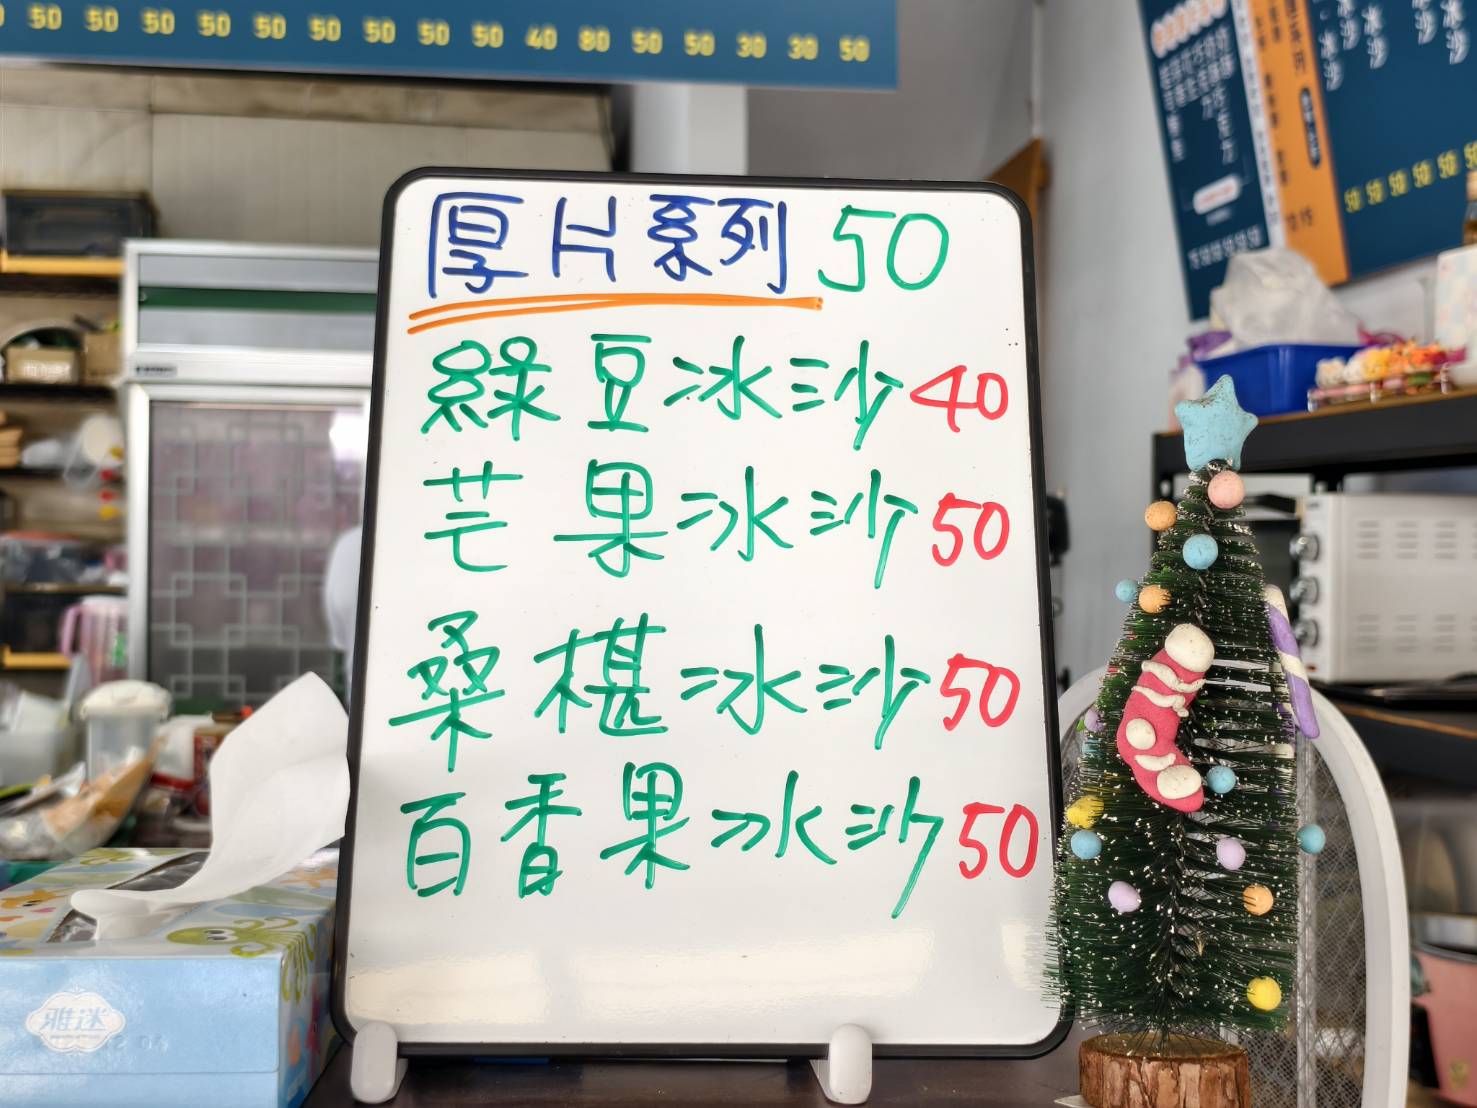 50 50 50 50 50 50 50 50 50 40 80 50 50 30 30 50
厚片系列 50
綠豆冰沙 40
芒果冰沙 50
桑椹冰沙 50
百香果冰沙 50
冰沙
50 50 50 50 50 50
雅迷